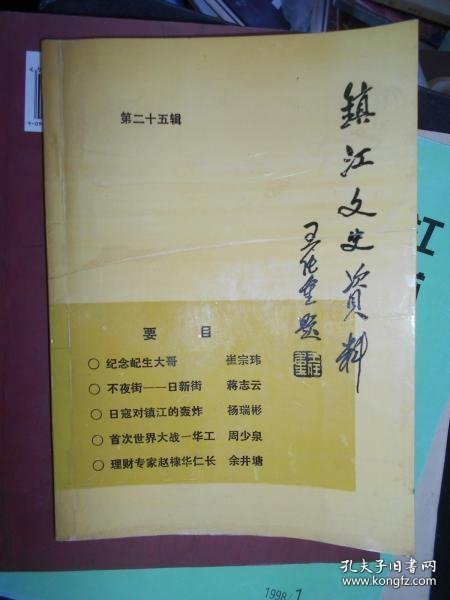 第二十五辑
镇江文史資料
要目
○ 纪念屺生大哥 崔宗玮
○ 不夜街——日新街 蒋志云
○ 日寇对镇江的轰炸 杨瑞彬
○ 首次世界大战一华工 周少泉
○ 理财专家赵棣华仁长 余井塘
江
1998/1
孔夫子旧书网
www.kongfz.com